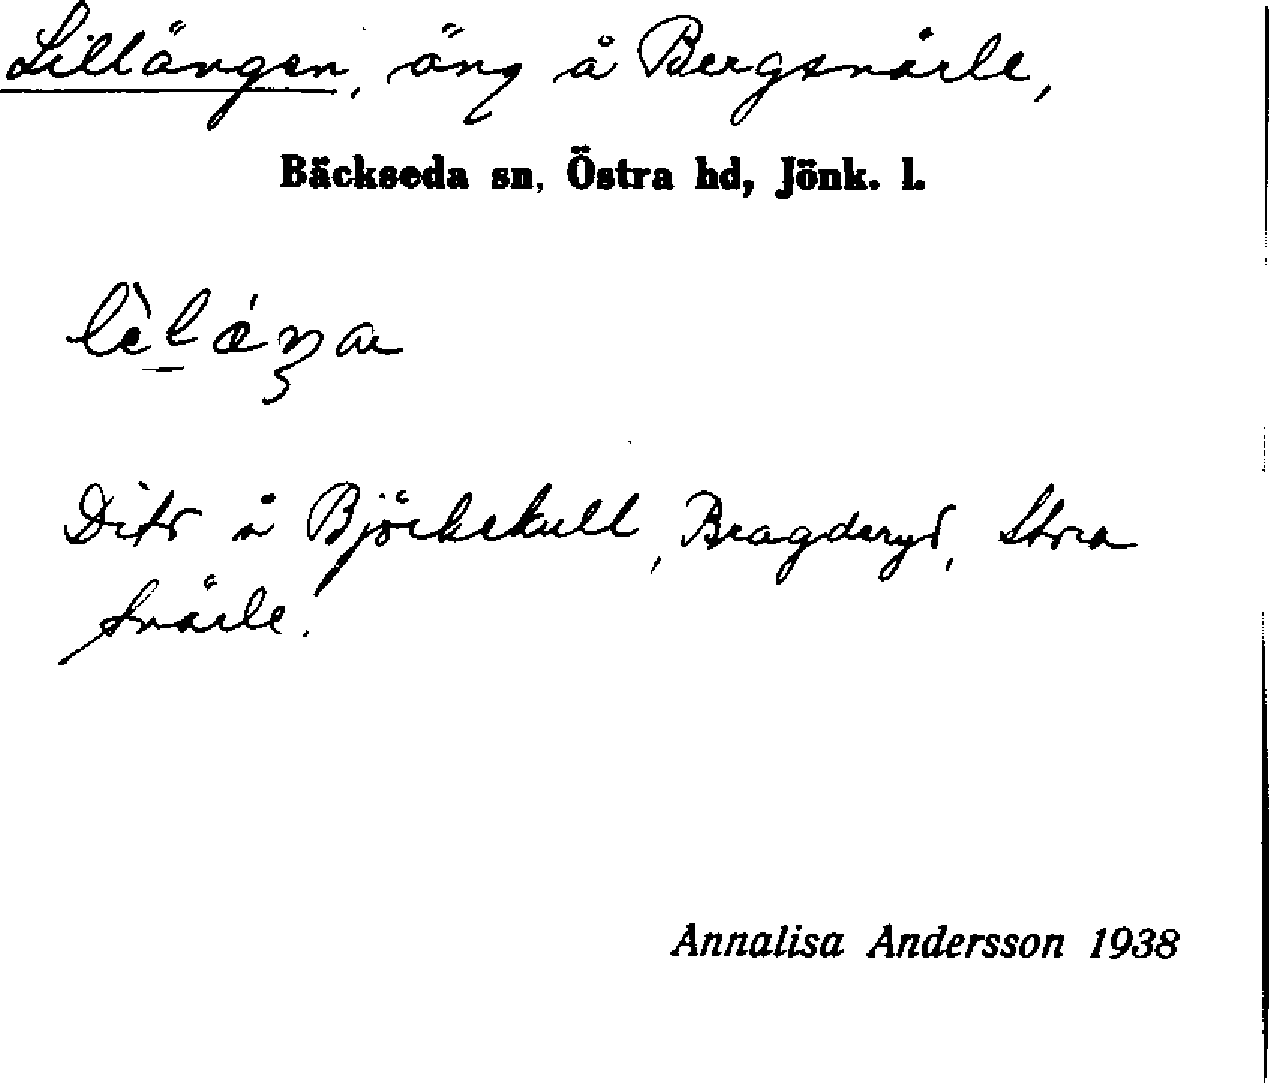 Lillängen, äng å Bergsnärle,
Bäckseda sn, Östra hd, Jönk. l.
Dito å Björkekull, Bragderyd, Stora
Snärle.
Annalisa Andersson 1938